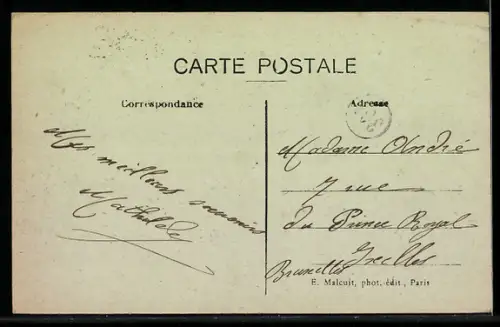 CARTE POSTALE
Correspondance
Mes meilleurs souvenirs
Mathilde
Adresse
Madame André
7 rue
du Prince Royal
Ixelles
Bruxelles
E. Malcuit, phot. édit., Paris